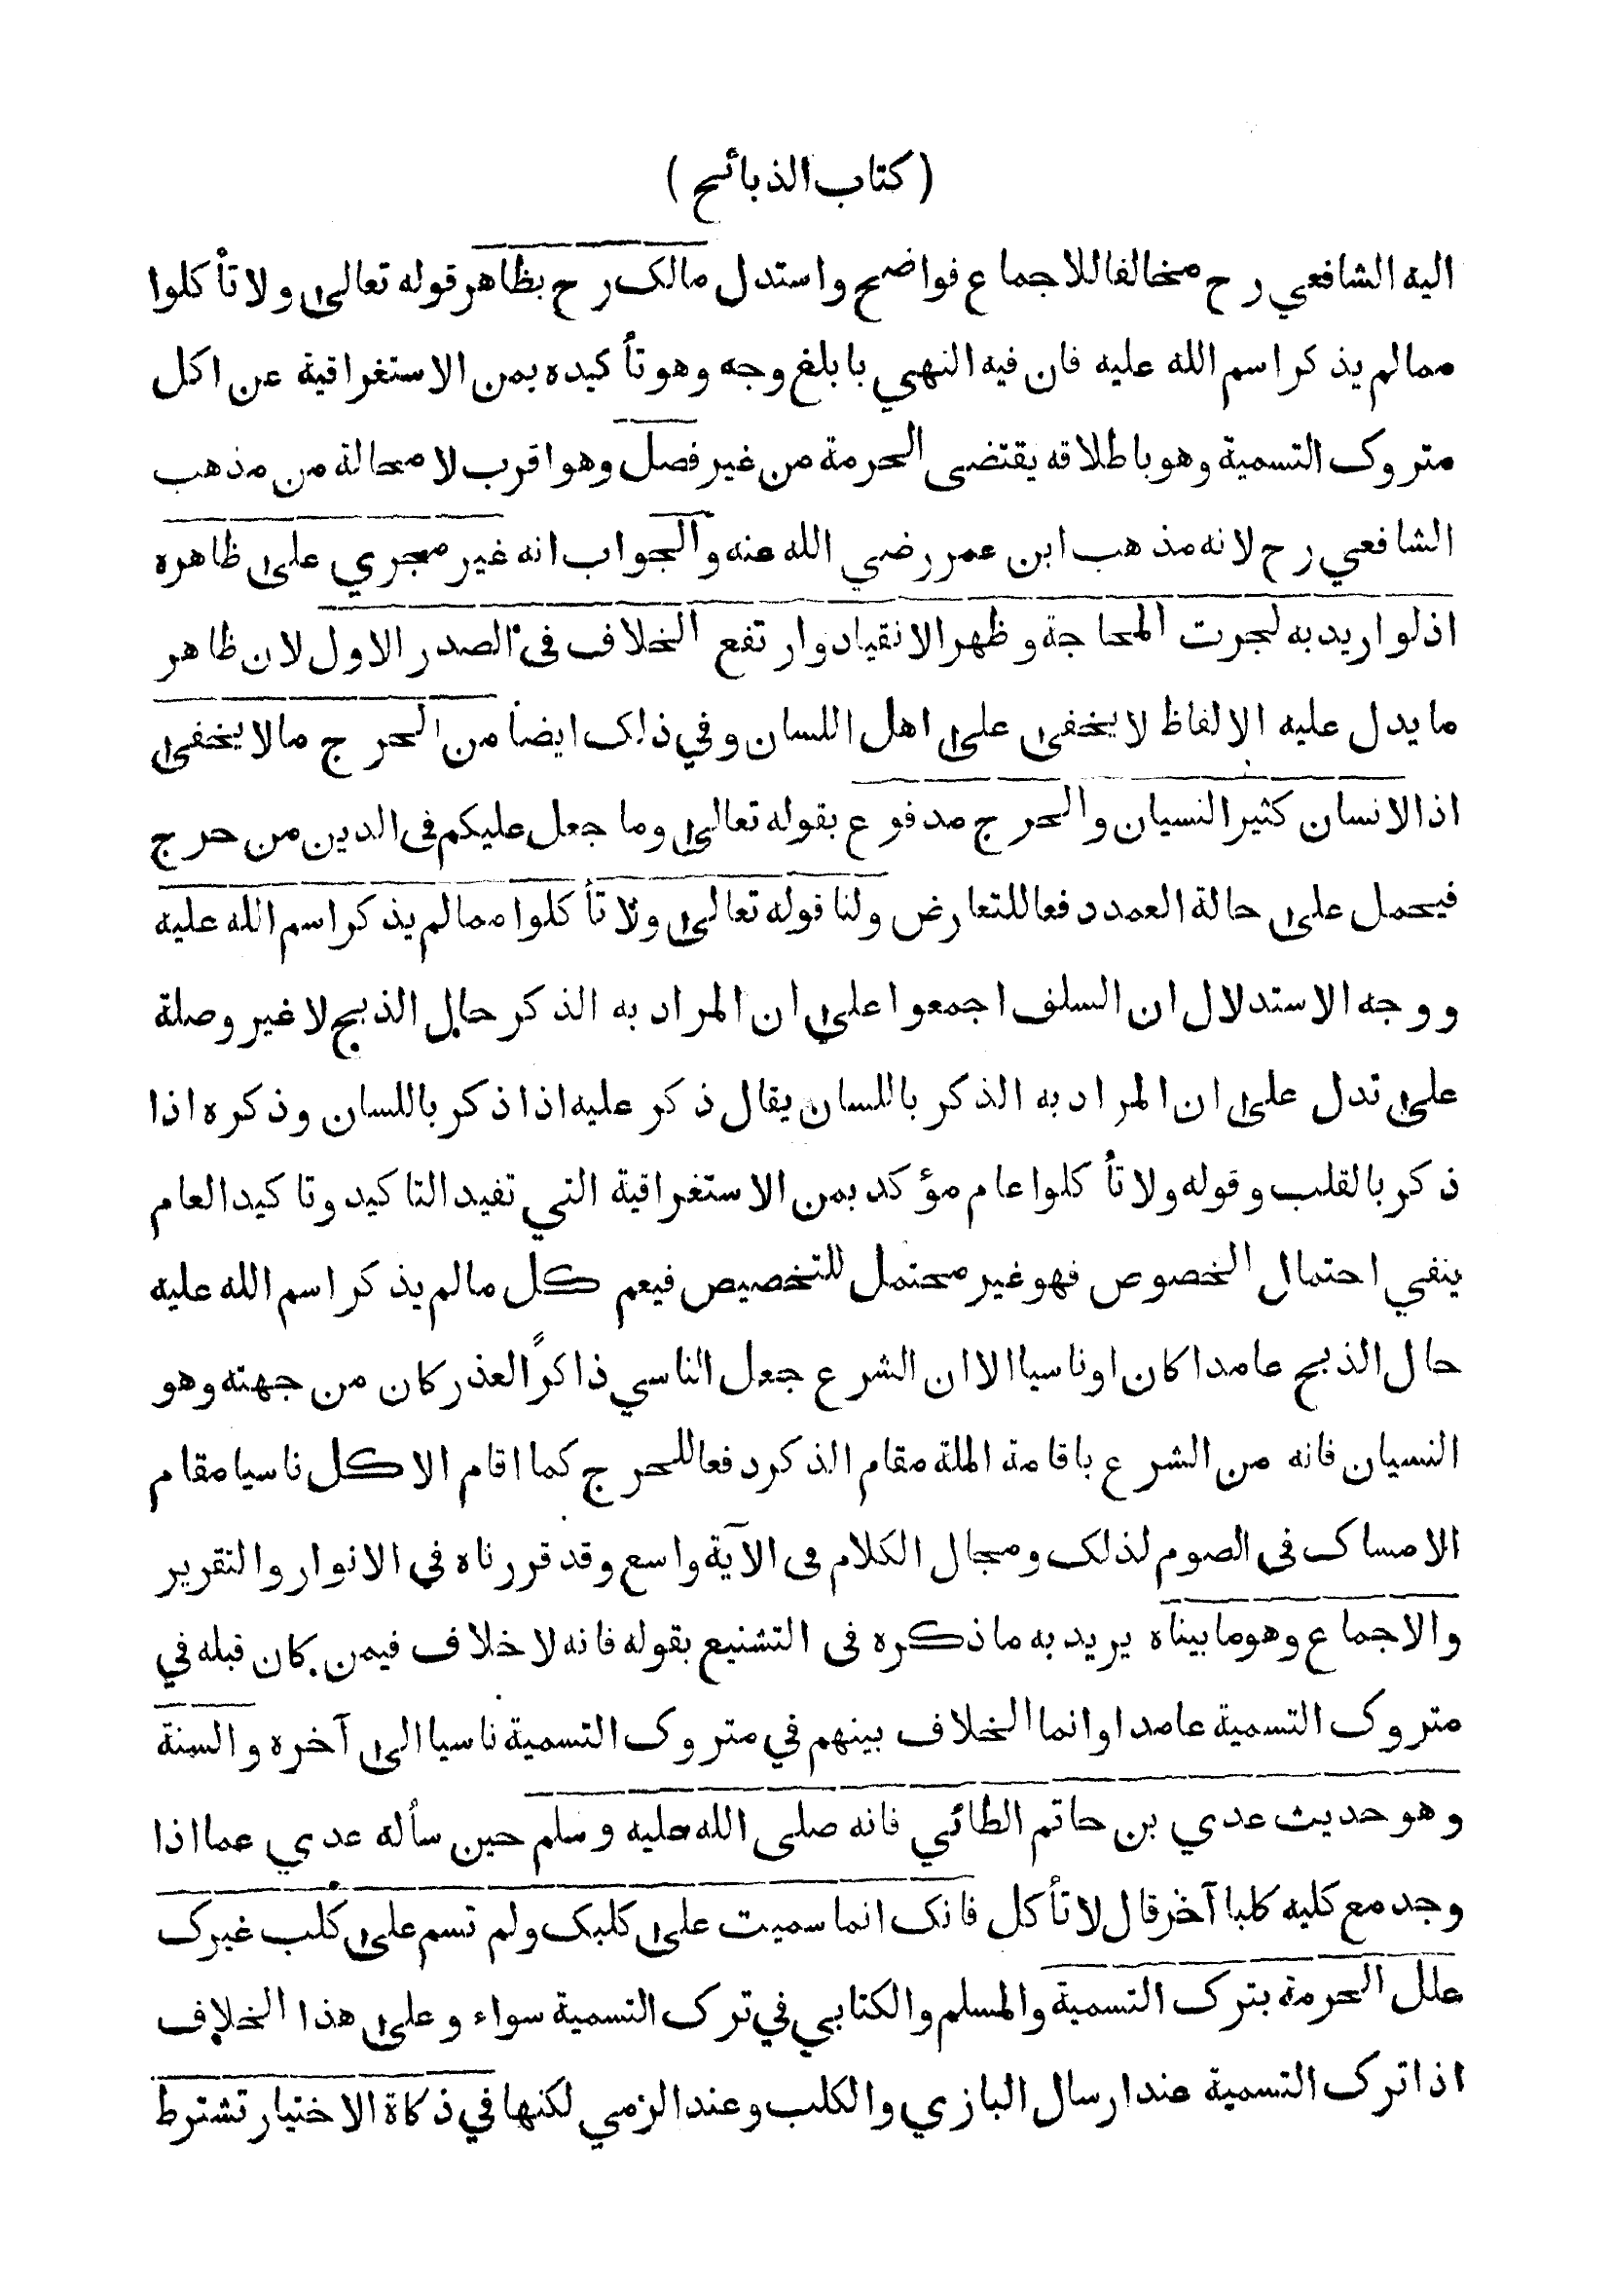 ( كتاب الذبائح )
اليه الشافعي رح مخالفا للاجماع فواضح واستدل مالك رح بظاهر قوله تعالى ولا تأكلوا
مما لم يذكر اسم الله عليه فان فيه النهي بابلغ وجه وهو تأكيده بمن الاستغراقية عن اكل
متروك التسمية وهو باطلاقه يقتضى الحرمة من غير فصل وهو اقرب لا محالة من مذهب
الشافعي رح لانه مذهب ابن عمر رضي الله عنه والجواب انه غير مجري على ظاهره
اذ لو اريد به لجرت المحاجة وظهر الانقياد وارتفع الخلاف فى الصدر الاول لان ظاهر
ما يدل عليه الالفاظ لا يخفى على اهل اللسان وفي ذلك ايضا من الحرج ما لا يخفى
اذ الانسان كثير النسيان والحرج مدفوع بقوله تعالى وما جعل عليكم فى الدين من حرج
فيحمل على حالة العمد دفعا للتعارض ولنا قوله تعالى ولا تأكلوا مما لم يذكر اسم الله عليه
ووجه الاستدلال ان السلف اجمعوا على ان المراد به الذكر حال الذبح لا غير وصلة
على تدل على ان المراد به الذكر باللسان يقال ذكر عليه اذا ذكر باللسان وذكره اذا
ذكر بالقلب وقوله ولا تأكلوا عام مؤكد بمن الاستغراقية التي تفيد التاكيد وتاكيد العام
ينفي احتمال الخصوص فهو غير محتمل للتخصيص فيعم كل ما لم يذكر اسم الله عليه
حال الذبح عامدا كان او ناسيا الا ان الشرع جعل الناسي ذاكرًا لعذر كان من جهته وهو
النسيان فانه من الشرع باقامة الملة مقام الذكر دفعا للحرج كما اقام الاكل ناسيا مقام
الامساك فى الصوم لذلك ومجال الكلام فى الآية واسع وقد قررناه في الانوار والتقرير
والاجماع وهو ما بيناه يريد به ما ذكره فى التشنيع بقوله فانه لا خلاف فيمن كان قبله في
متروك التسمية عامدا وانما الخلاف بينهم في متروك التسمية ناسيا الى آخره والسنة
وهو حديث عدي بن حاتم الطائي فانه صلى الله عليه وسلم حين سأله عدي عما اذا
وجد مع كلبه كلبا آخر قال لا تأكل فانك انما سميت على كلبك ولم تسم على كلب غيرك
علل الحرمة بترك التسمية والمسلم والكتابي في ترك التسمية سواء وعلى هذا الخلاف
اذا ترك التسمية عند ارسال البازي والكلب وعند الرمي لكنها في ذكاة الاختيار تشترط